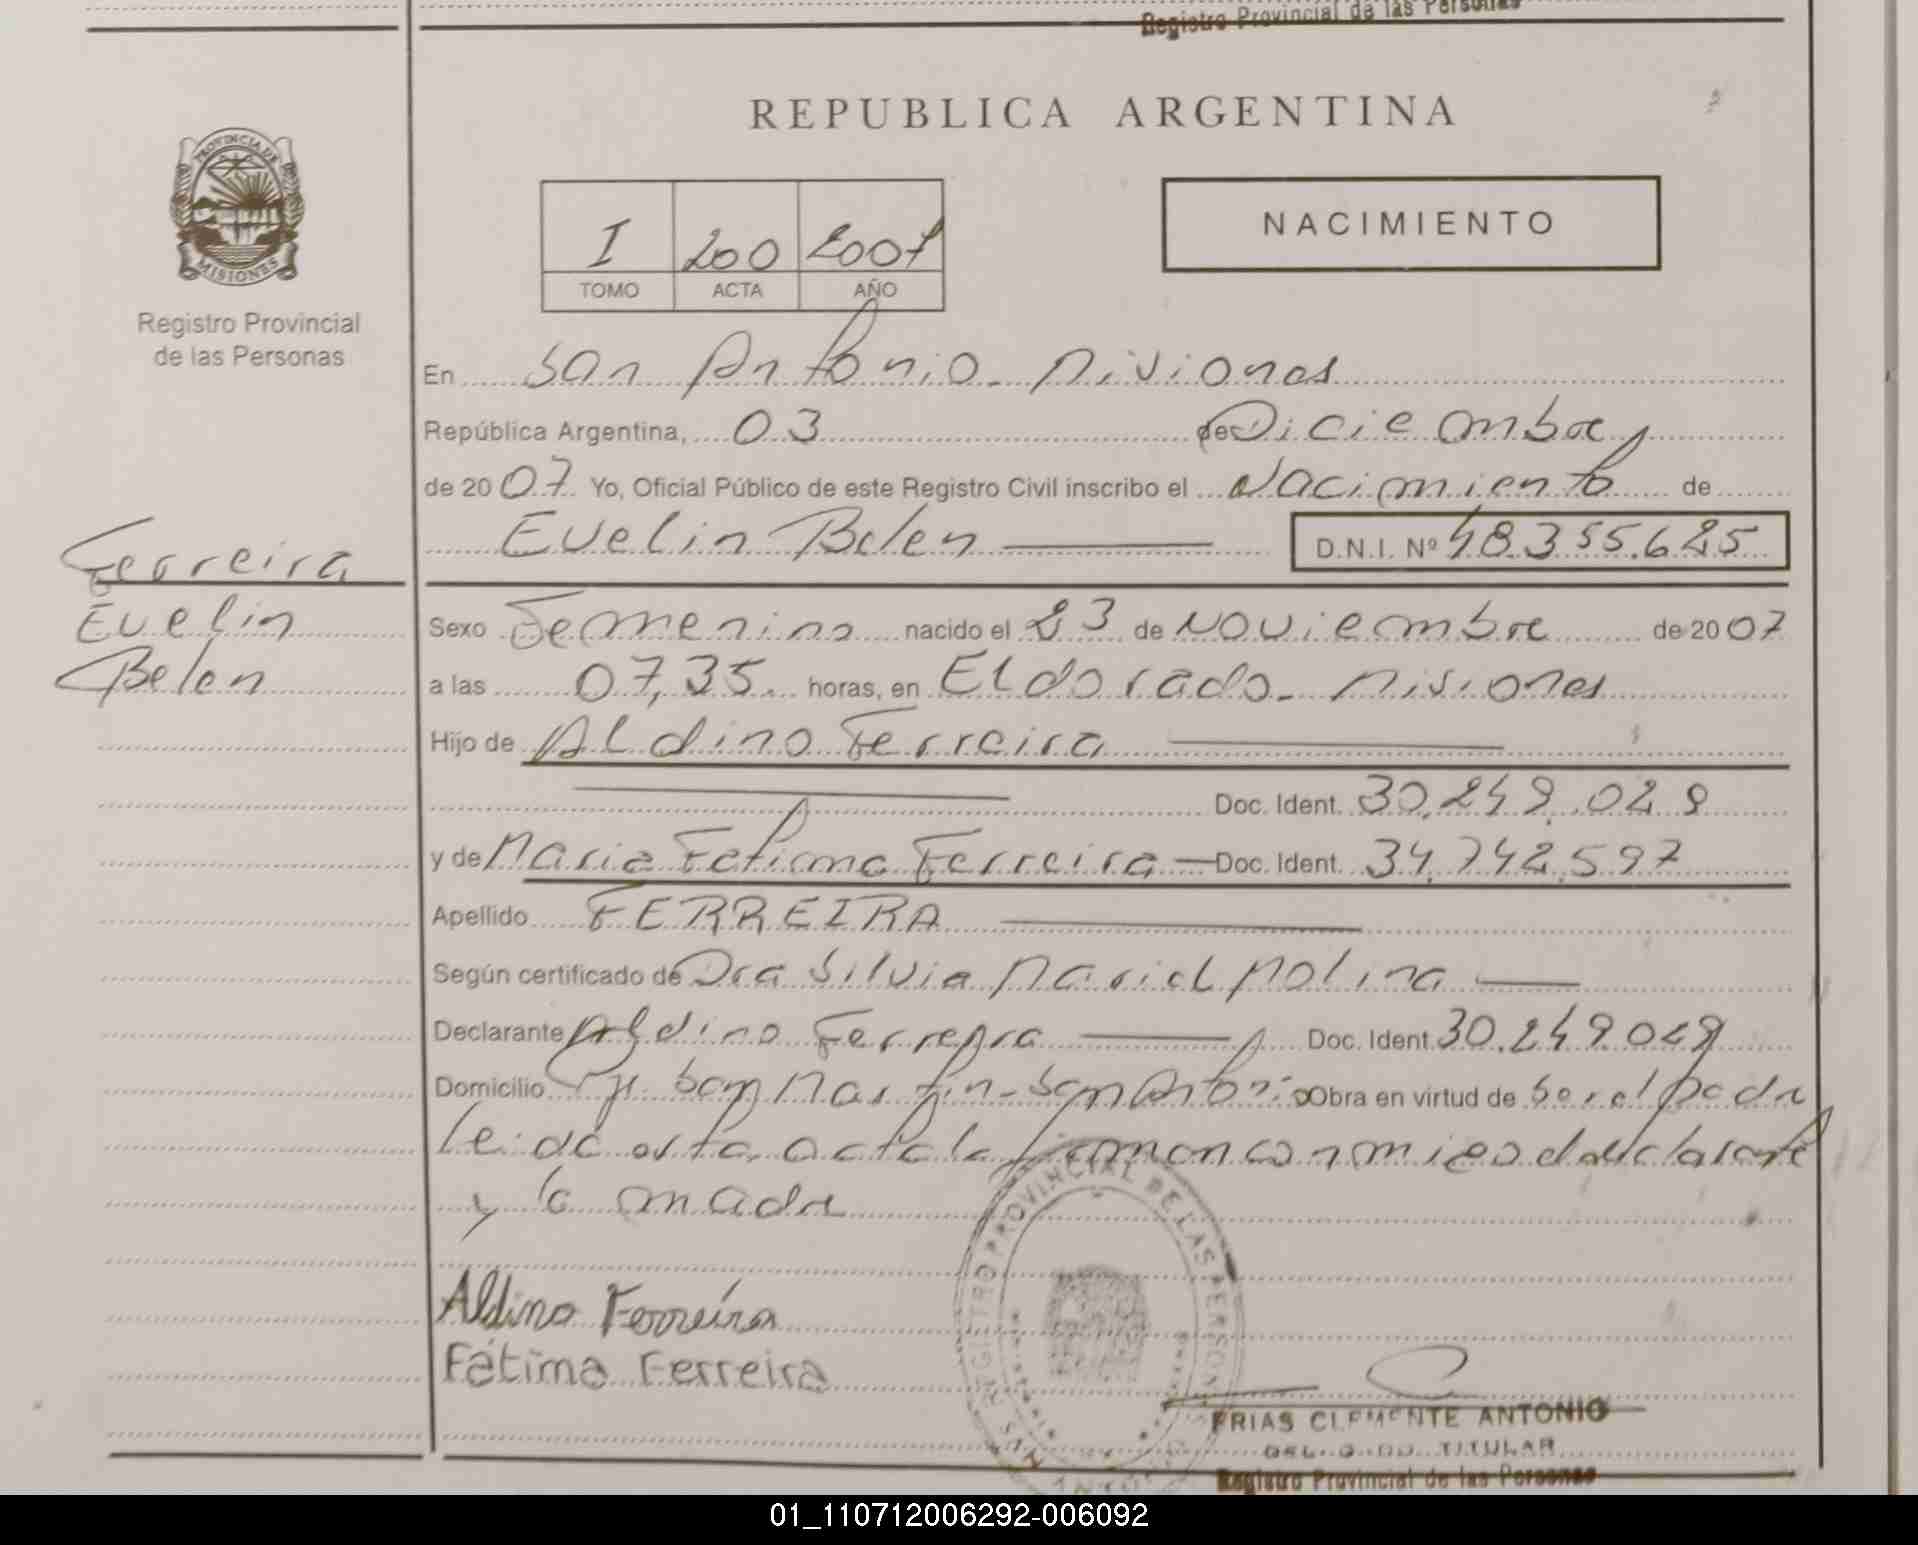 Registro Provincial de las Personas
REPUBLICA ARGENTINA
PROVINCIA DE
MISIONES
Registro Provincial
de las Personas
I 200 2007
TOMO ACTA AÑO
NACIMIENTO
En San Antonio - Misiones
República Argentina, 03 de Diciembre
de 2007 Yo, Oficial Público de este Registro Civil inscribo el Nacimiento de
Evelin Belen D.N.I. Nº 48.355.625
Ferreira
Evelin
Belen
Sexo Femenino nacido el 23 de Noviembre de 2007
a las 07,35 horas, en Eldorado - Misiones
Hijo de Aldino Ferreira
Doc. Ident. 30.249.029
y de Maria Fatima Ferreira Doc. Ident. 34.742.597
Apellido FERREIRA
Según certificado de Dra Silvia Mariel Molina
Declarante Aldino Ferreira Doc. Ident. 30.249.029
Domicilio San Antonio Obra en virtud de Ser el padre
Leida esta acta la firman conmigo declarante
y la madre
Aldino Ferreira
Fátima Ferreira
REGISTRO PROVINCIAL DE LAS PERSONAS
FRIAS CLEMENTE ANTONIO
DELEGADO TITULAR
Registro Provincial de las Personas
01_110712006292-006092